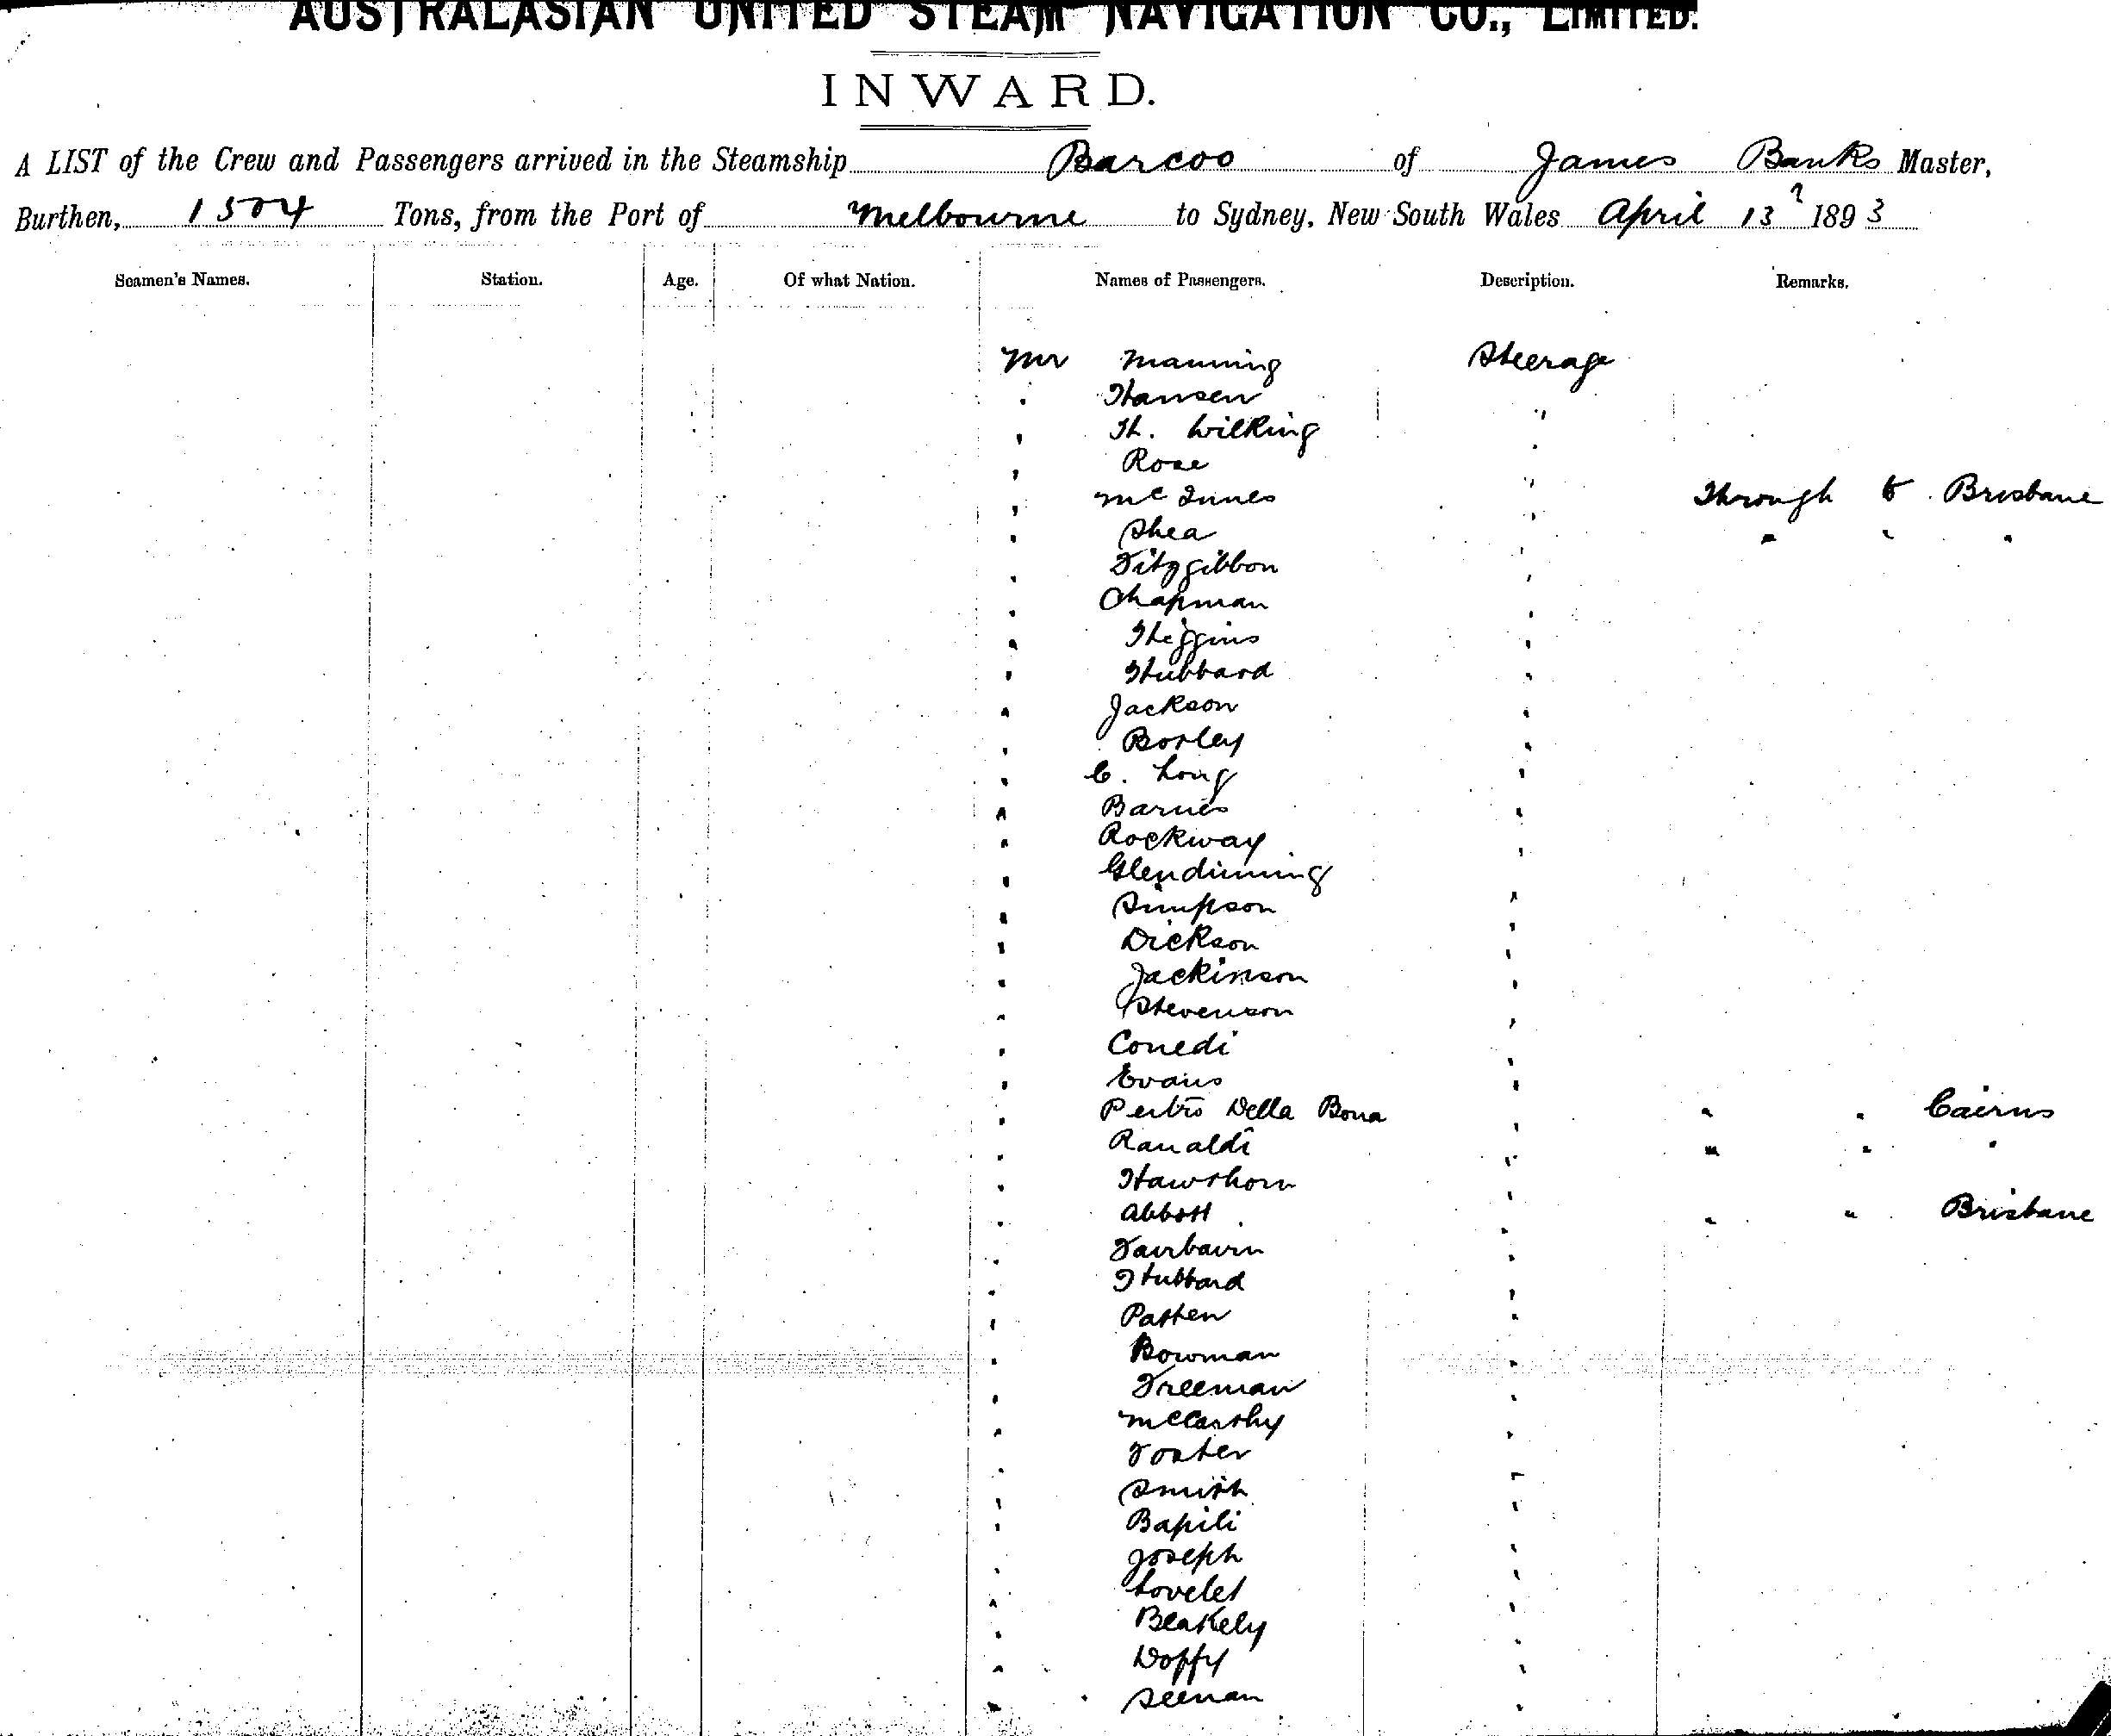 AUSTRALASIAN UNITED STEAM NAVIGATION CO., LIMITED.
INWARD.
A LIST of the Crew and Passengers arrived in the Steamship Barcoo of James Banks Master,
Burthen, 1504 Tons, from the Port of Melbourne to Sydney, New South Wales April 13 1893
Seamen's Names. Station. Age. Of what Nation. Names of Passengers. Description. Remarks.
Mr Manning Steerage
" Hansen "
" H. Wilking "
" Rose "
" McInnes " Through to Brisbane
" Shea " " " "
" Fitzgibbon "
" Chapman "
" Higgins "
" Hubbard "
" Jackson "
" Borley "
" C. Long "
" Barnes "
" Rockway "
" Glendinning "
" Simpson "
" Dickson "
" Jackinson "
" Stevenson "
" Conedi "
" Evans "
" Della Bona " " " Cairns
" Ranaldi " " " "
" Hawthorn "
" Abbott " " " Brisbane
" Fairbairn "
" Hubbard "
" Patten "
" Bowman "
" Freeman "
" McCarthy "
" Foster "
" Smith "
" Bapili "
" Joseph "
" Lovelet "
" Blakely "
" "
" Seenan "